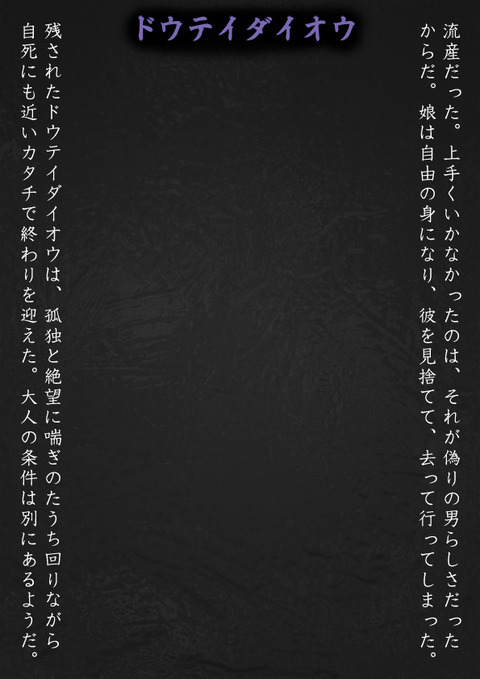 ドウテイダイオウ
流産だった。上手くいかなかったのは、それが偽りの男らしさだった
からだ。娘は自由の身になり、彼を見捨てて、去って行ってしまった。
残されたドウテイダイオウは、孤独と絶望に喘ぎのたうち回りながら
自死にも近いカタチで終わりを迎えた。大人の条件は別にあるようだ。